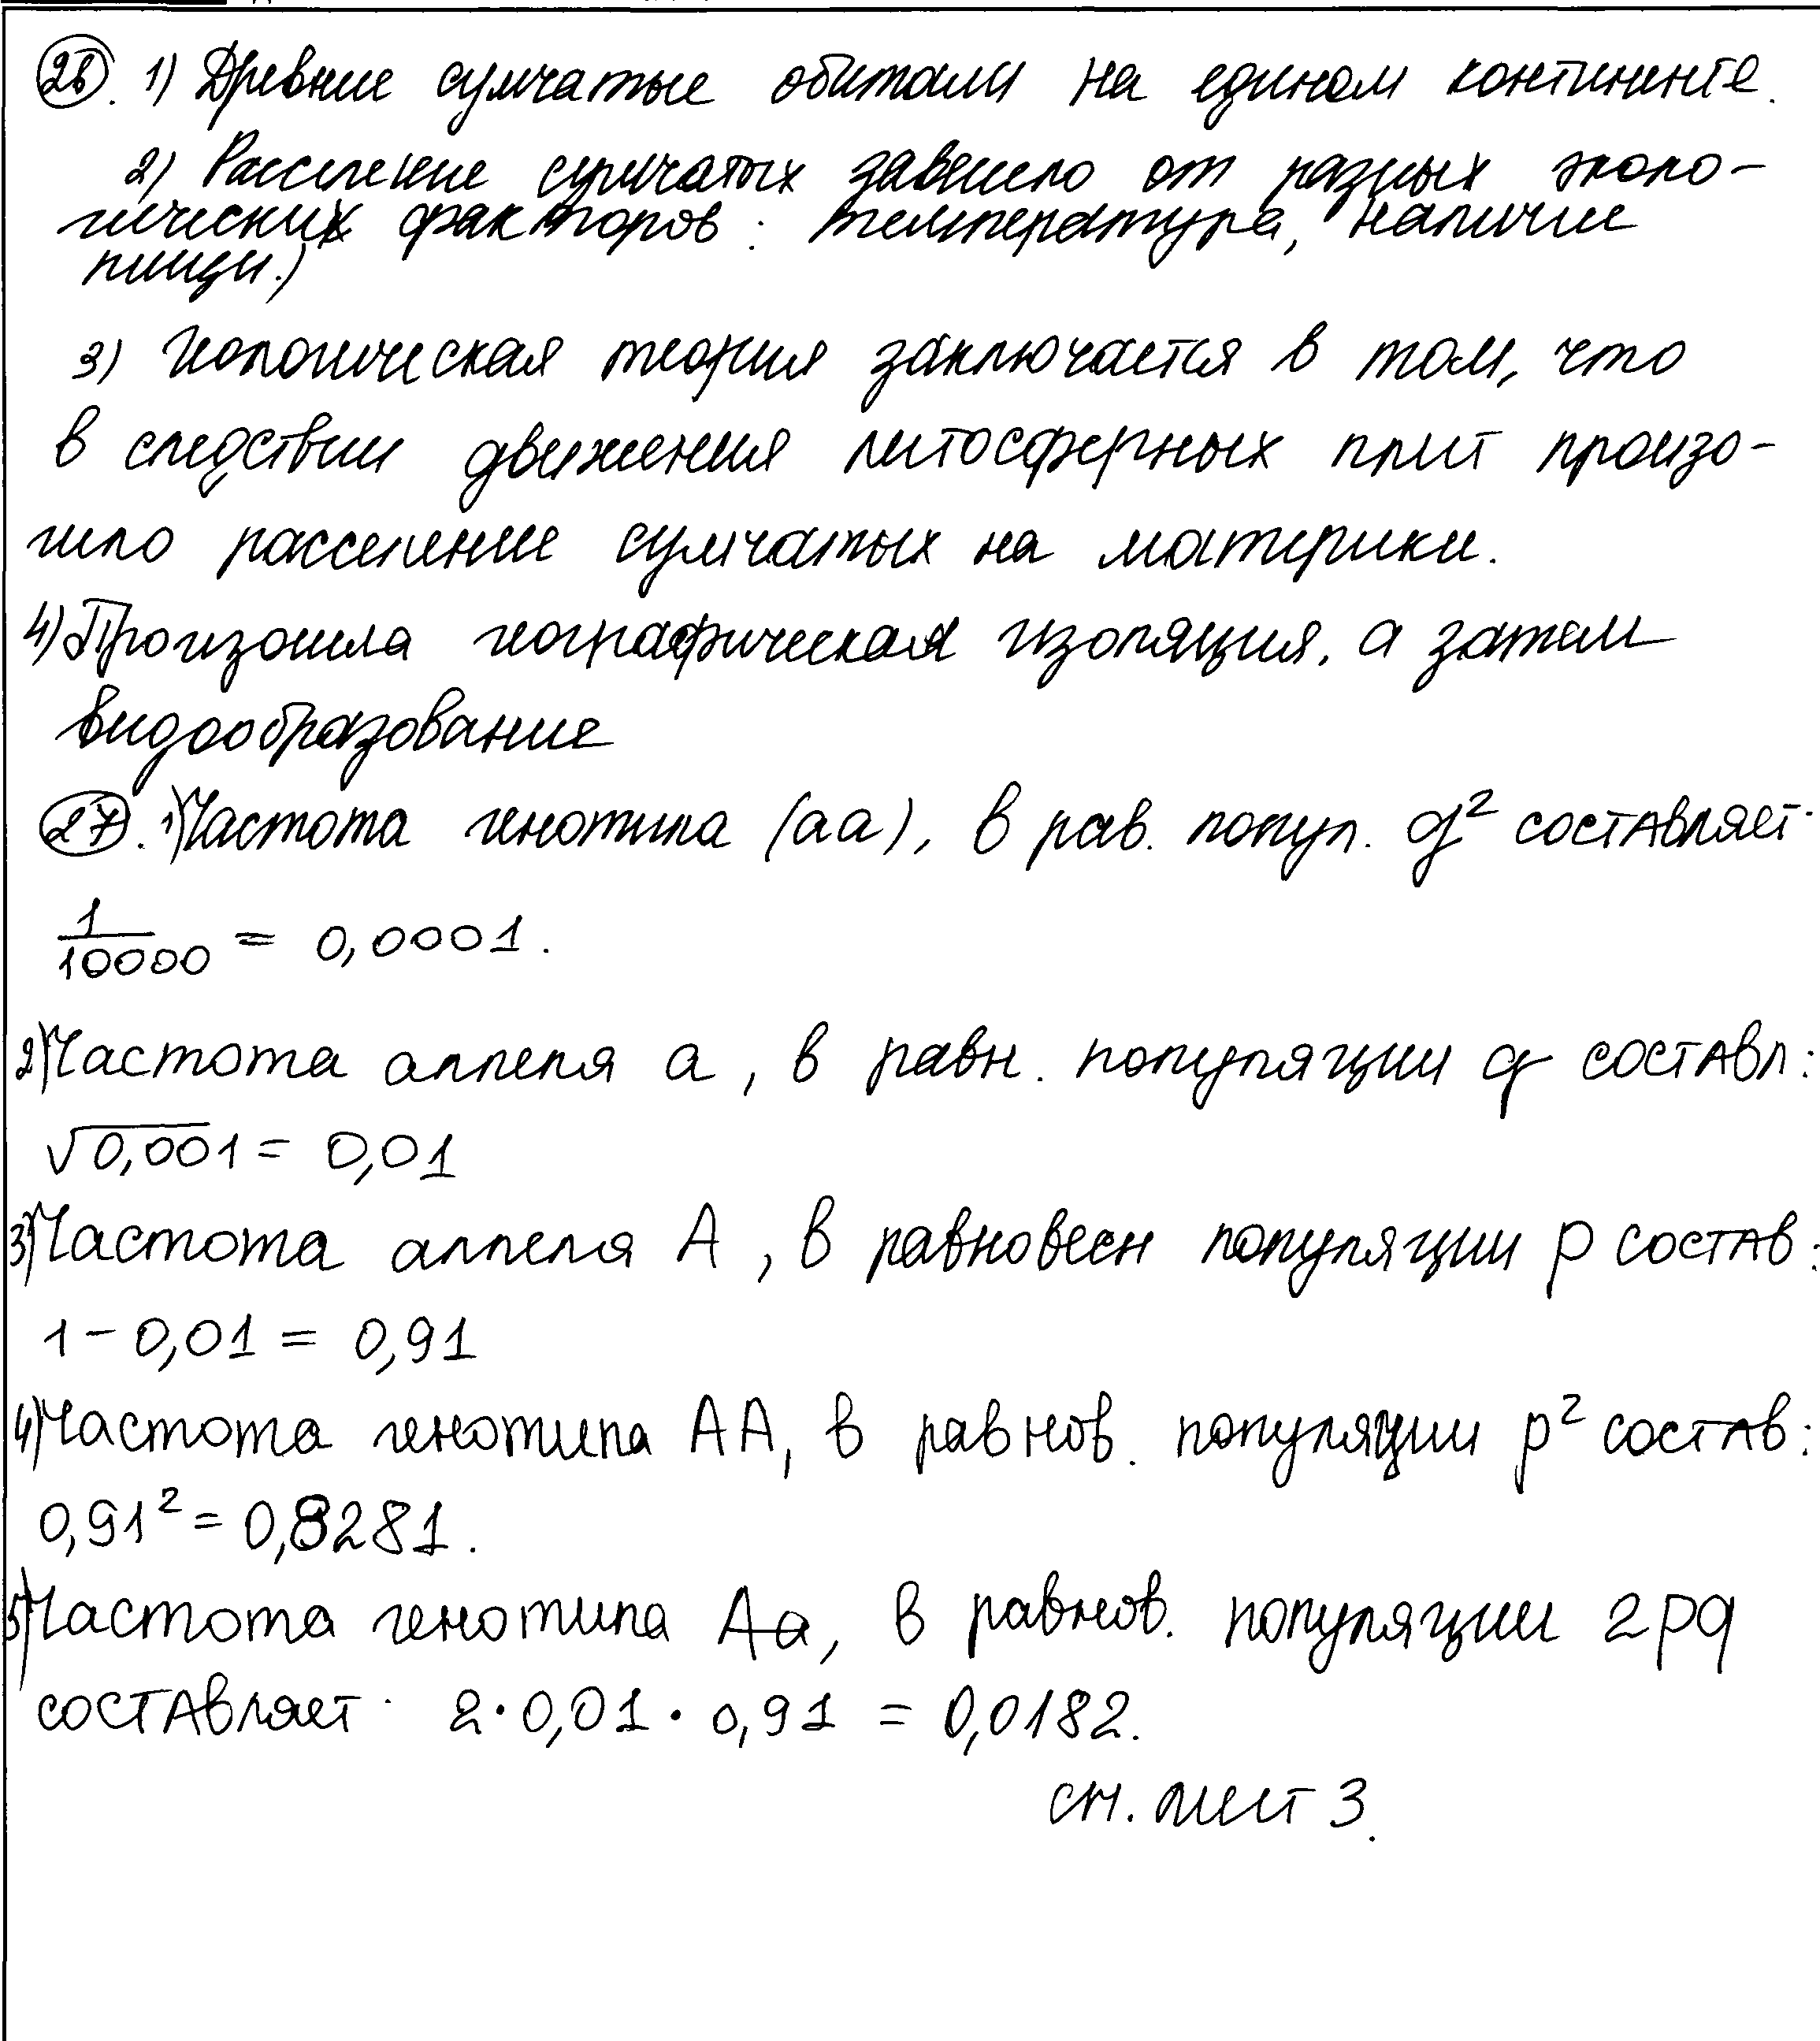 26. 1) Древние сумчатые обитали на едином континенте.
2) Расселение сумчатых зависило от разных эколо-
гических факторов: температура, наличие
пищи.)
3) Геологическая теория заключается в том, что
в следствии движения литосферных плит произо-
шло расселение сумчатых на материки.
4) Произошла географическая изоляция, а затем
видообразование
27. 1) Частота генотипа (аа), в рав. попул. q² составляет:
1/10000 = 0,0001.
2) Частота аллеля а, в равн. популяции q составл:
√0,001 = 0,01
3) Частота аллеля А, в равновесн популяции p состав:
1 - 0,01 = 0,91
4) Частота генотипа АА, в равнов. популяции p² состав:
0,91² = 0,8281.
5) Частота генотипа Аа, в равнов. популяции 2pq
составляет: 2·0,01·0,91 = 0,0182.
см. лист 3.